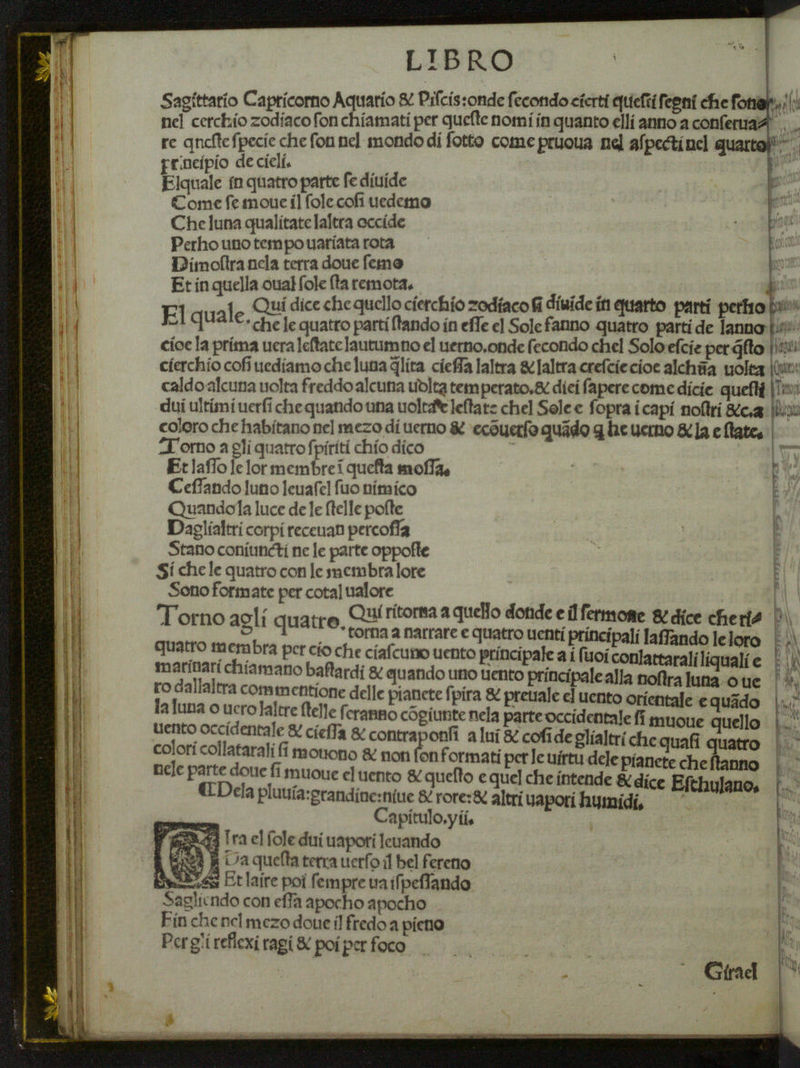 LIBRO
Sagittario Capricorno Aquario & Piſcis:onde ſecondo cierti queſti ſegni che ſono
nel cerchio zodiaco ſon chiamati per queſte nomi in quanto elli anno a conſerua
re qneſte ſpecie che ſon nel mondo di ſotto come pruoua nel aſpecti nel quarto
principio de cieli.
Elquale in quatro parte ſe diuide
Come ſe moue il ſole coſi uedemo
Che luna qualitate laltra occide
Perho uno tempo uariata rota
Dimoſtra nela terra doue ſemo
Et in quella oual ſole ſta remota.
El quale. Qui dice che quello cierchio zodiaco ſi diuide in quarto parti perho
che le quatro parti ſtando in eſſe el Sole fanno quatro parti de lanno
cioe la prima uera leſtate lautumno el uerno.onde ſecondo chel Solo eſcie per q̃ſto
cierchio coſi uediamo che luna q̃lita cieſſa laltra & laltra creſcie cioe alchũa uolta
caldo alcuna uolta freddo alcuna uolta temperato.& diei ſapere come dicie queſti
dui ultimi uerſi che quando una uolta leſtate chel Sole e ſopra i capi noſtri &c.a
coloro che habitano nel mezo di uerno & ecõuerſo quãdo q he uerno & la e ſtate.
Torno a gli quatro ſpiriti chio dico
Et laſſo le lor membre ĩ queſta moſſa.
Ceſſando luno leuaſel ſuo nimico
Quando la luce de le ſtelle poſte
Daglialtri corpi receuan percoſſa
Stano coniuncti ne le parte oppoſte
Si che le quatro con le membra lore
Sono formate per cotal ualore
Torno agli quatro. Qui ritorna a quello donde e il ſermone & dice che ri
torna a narrare e quatro uenti principali laſſando le loro
quatro membra per cio che ciaſcuno uento principale a i ſuoi conlattarali liquali e
marinari chiamano baſtardi & quando uno uento principale alla noſtra luna o ue
ro dallaltra commentione delle pianete ſpira & preuale el uento orientale e quãdo
la luna o uero laltre ſtelle ſcranno cõgiunte nela parte occidentale ſi muoue quello
uento occidentale & cieſſa & contraponſi a lui & coſi de glialtri che quaſi quatro
colori collatarali ſi mouono & non ſon formati per le uirtu dele pianete che ſtanno
nele parte doue ſi muoue el uento & queſto e quel che intende & dice Eſchulano.
¶Dela pluuia:grandine:niue & rore:& altri uapori humidi.
Capitulo.yii.
Tra el ſole dui uapori leuando
Da queſta terra uerſo il bel ſereno
Et laire poi ſempre ua iſpeſſando
Sagliendo con eſſa apocho apocho
Fin che nel mezo doue il fredo a pieno
Per gli reflexi ragi & poi per foco
Girael